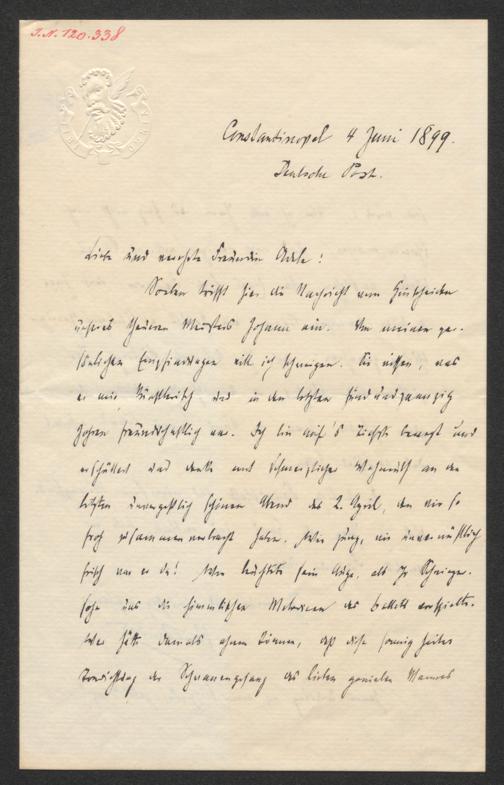 J.N. 120.338
Constantinopel 4 Juni 1899.
Deutsche Post.
Liebe und verehrte Freundin Adele!
Soeben trifft hier die Nachricht vom Hinscheiden
unseres theuren Meisters Johann ein. Von meinen per-
sönlichen Empfindungen will ich schweigen. Sie wissen, was
er mir künstlerisch und in den letzten fünfundzwanzig
Jahren freundschaftlich war. Ich bin auf's Tiefste bewegt und
erschüttert und denke mit schmerzlicher Wehmuth an den
letzten unvergeßlich schönen Abend des 2. April, den wir so
froh zusammen verbracht haben. Wie jung, wie unverwüstlich
frisch war er da! Wie leuchtete sein Auge, als Ihr Schwieger-
sohn uns die himmlischen Melodieen des Ballett vorspielte.
Wer hätte damals ahnen können, daß diese sonnig heitere
Tondichtung der Schwanengesang des lieben genialen Mannes